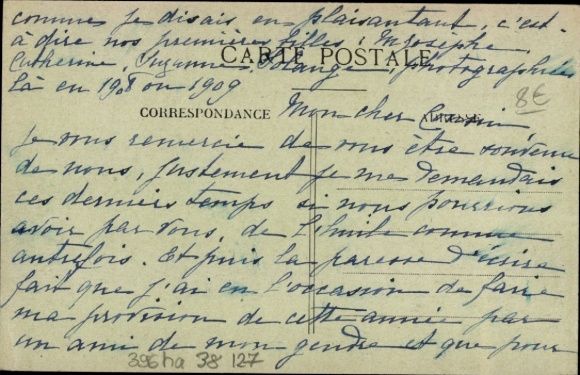 comme je disais en plaisantant, c'est-
à dire nos premières filles, M. Josèphe,
Catherine, Suzanne, Solange, photographiées
CARTE POSTALE
là en 1908 ou 1909
8€
CORRESPONDANCE
ADRESSE
Mon cher Cousin
Je vous remercie de vous être souvenu
de nous, justement je me demandais
ces derniers temps si nous pourrions
avoir par vous, de l'huile comme
autrefois. Et puis la paresse d'écrire
fait que j'ai eu l'occasion de faire
ma provision de cette année par
un ami de mon gendre et que pour
396 ha 38 127